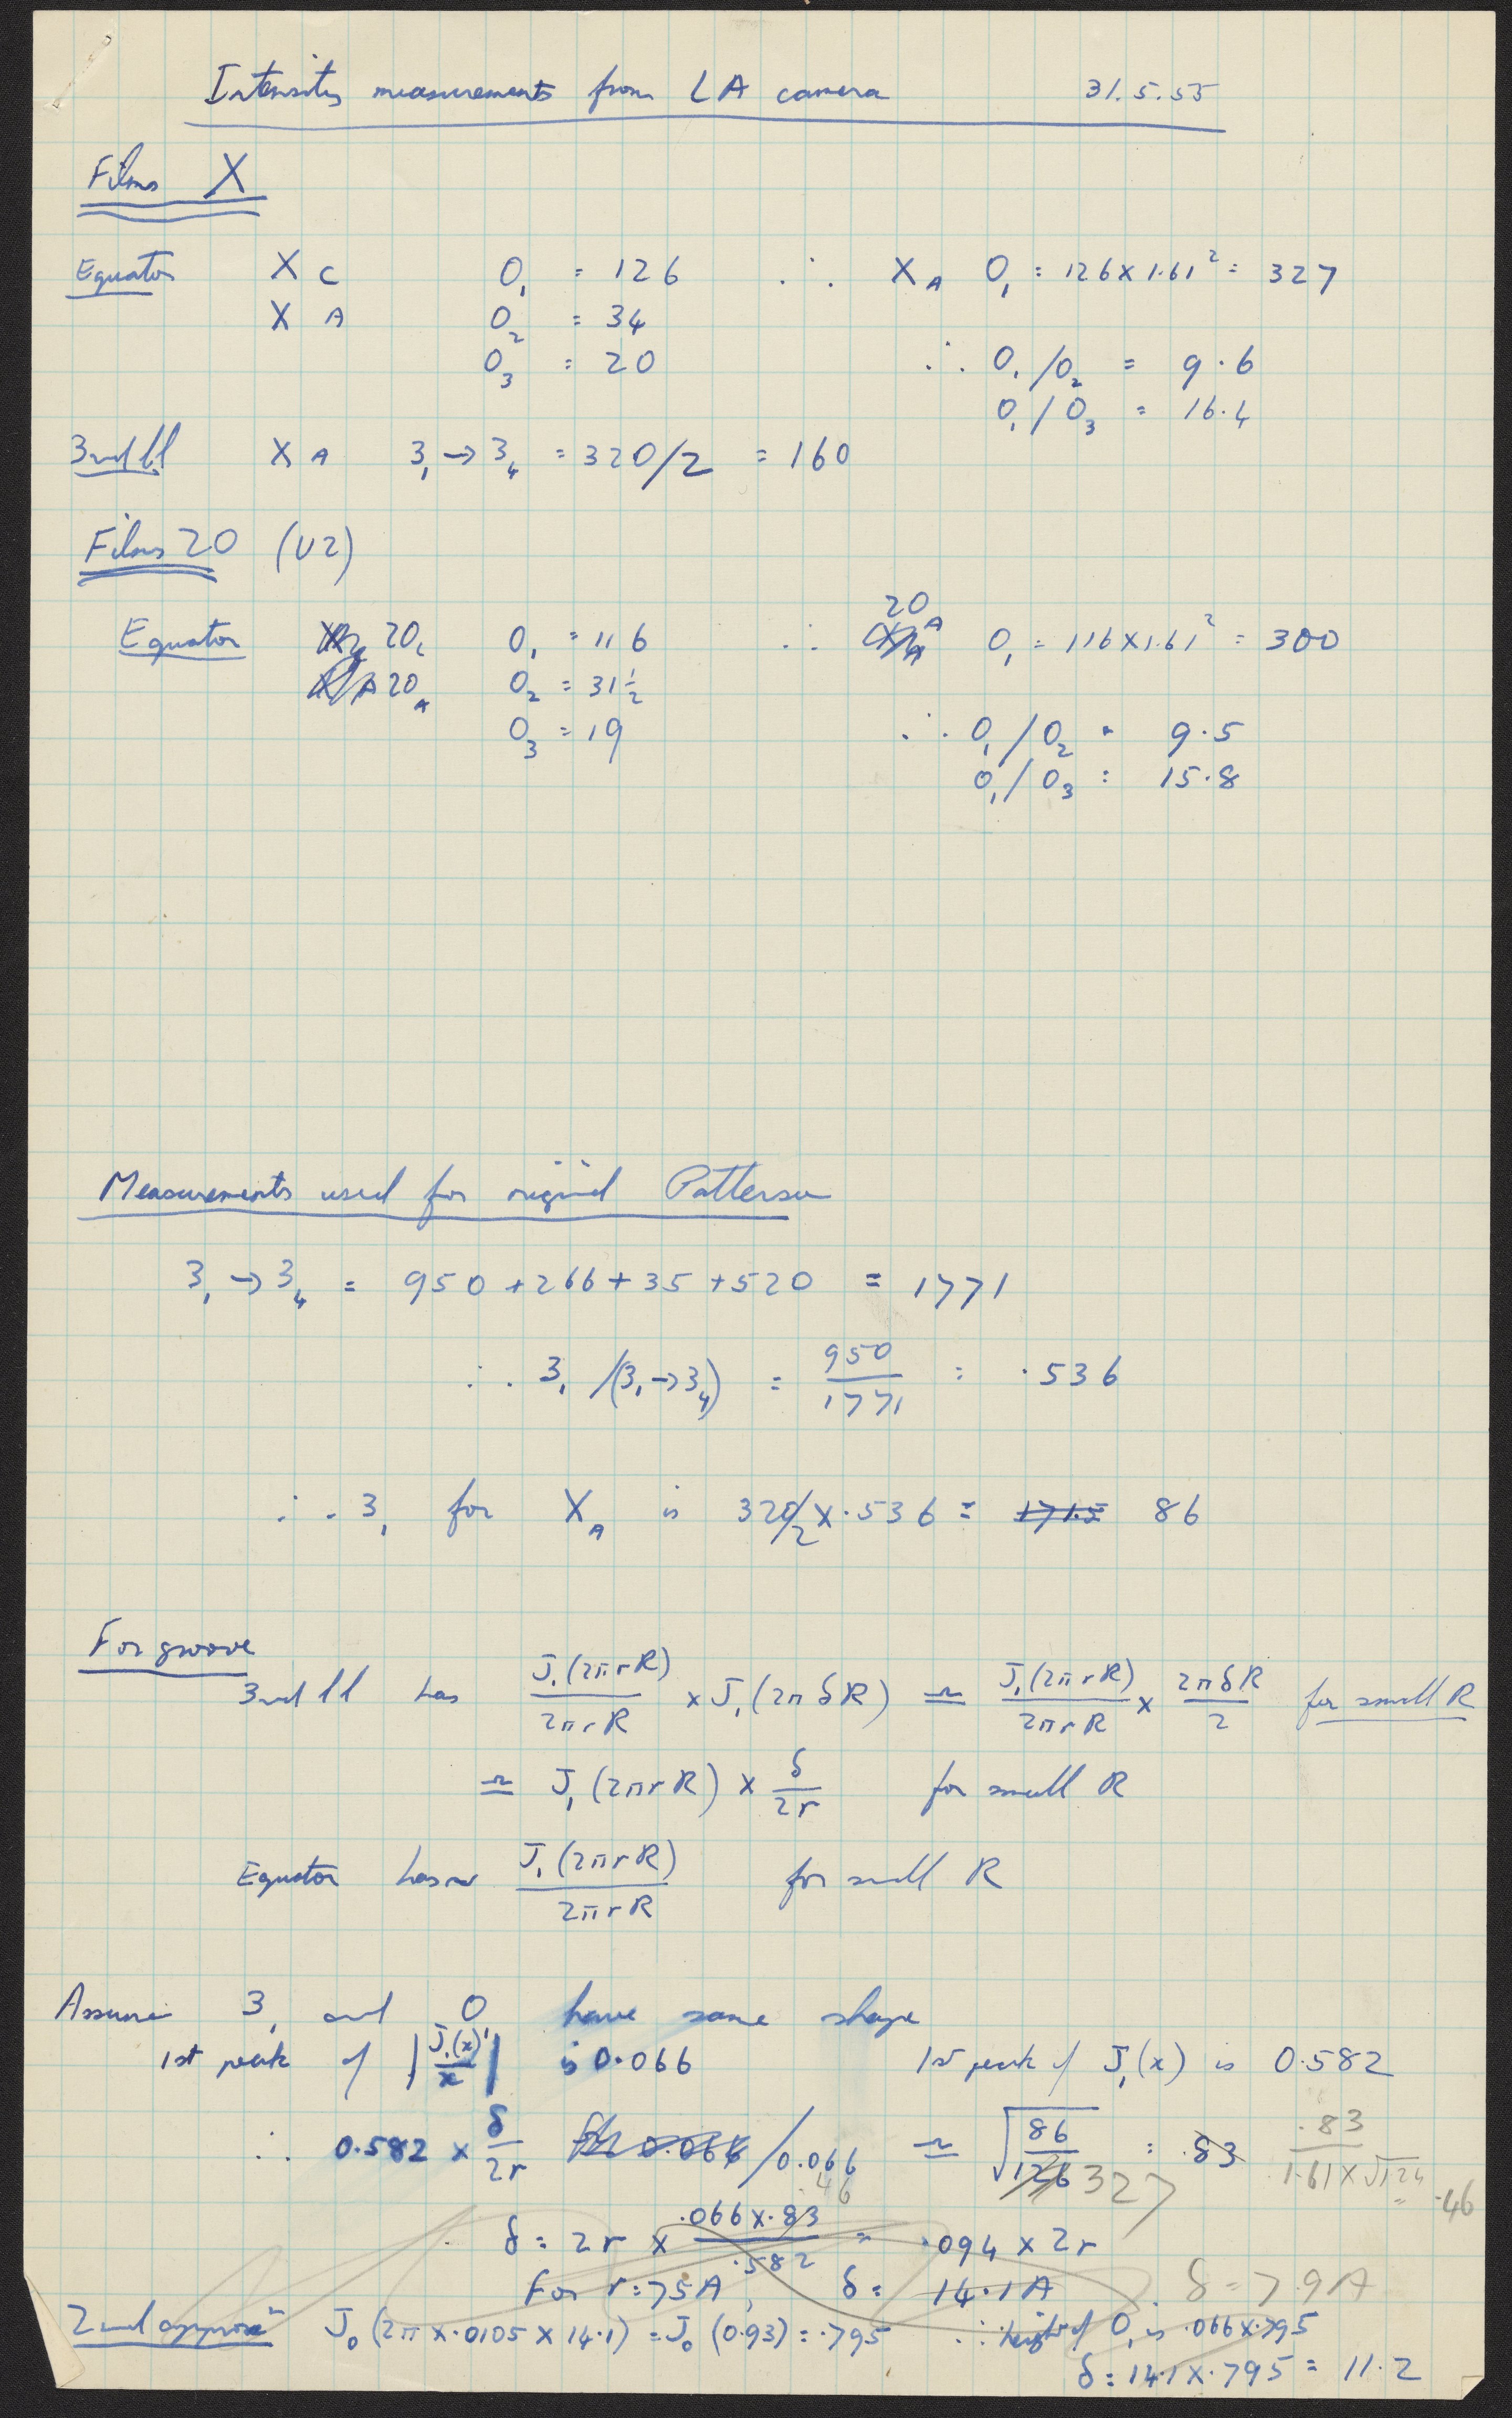 Intensity measurements from LA camera 31.5.55
Films X
Equator X C O₁ = 126 ∴ X A O₁ = 126 x 1.61² = 327
X A O₂ = 34
O₃ = 20 ∴ O₁/O₂ = 9.6
O₁/O₃ = 16.4
3rd ll X A 3₁ → 3₄ = 320/2 = 160
Films 20 (U2)
20 A
Equator 20c O₁ = 116 ∴ O₁ = 116 x 1.61² = 300
20 A O₂ = 31½
O₃ = 19 ∴ O₁/O₂ = 9.5
O₁/O₃ = 15.8
Measurements used for original Patterson
3₁ → 3₄ = 950 + 266 + 35 + 520 = 1771
∴ 3₁/(3₁→3₄) = 950/1771 = .536
∴ 3₁ for X A is 320/2 x .536 = 171.5 86
For groove
3rd ll has J₁(2πrR)/2πrR x J₁(2πδR) ≃ J₁(2πrR)/2πrR x 2πδR/2 for small R
≃ J₁(2πrR) x δ/2r for small R
Equator has J₁(2πrR)/2πrR for small R
Assume 3₁ and O have same shape
1st peak of |J₁(x)/x| is 0.066 1st peak of J₁(x) is 0.582
∴ 0.582 x δ/2r 0.066 /0.066 ≃ √86/126 327 = .83 .83/1.61 x √124 = .46
.46
δ = 2r x .066 x .83/.582 = .094 x 2r
For r = 75A, δ = 14.1A δ = 7.9A
2nd approxⁿ J₀(2π x .0105 x 14.1) = J₀(0.93) = .795 ∴ height of O₁ is .066 x .795
δ = 14.1 x .795 = 11.2